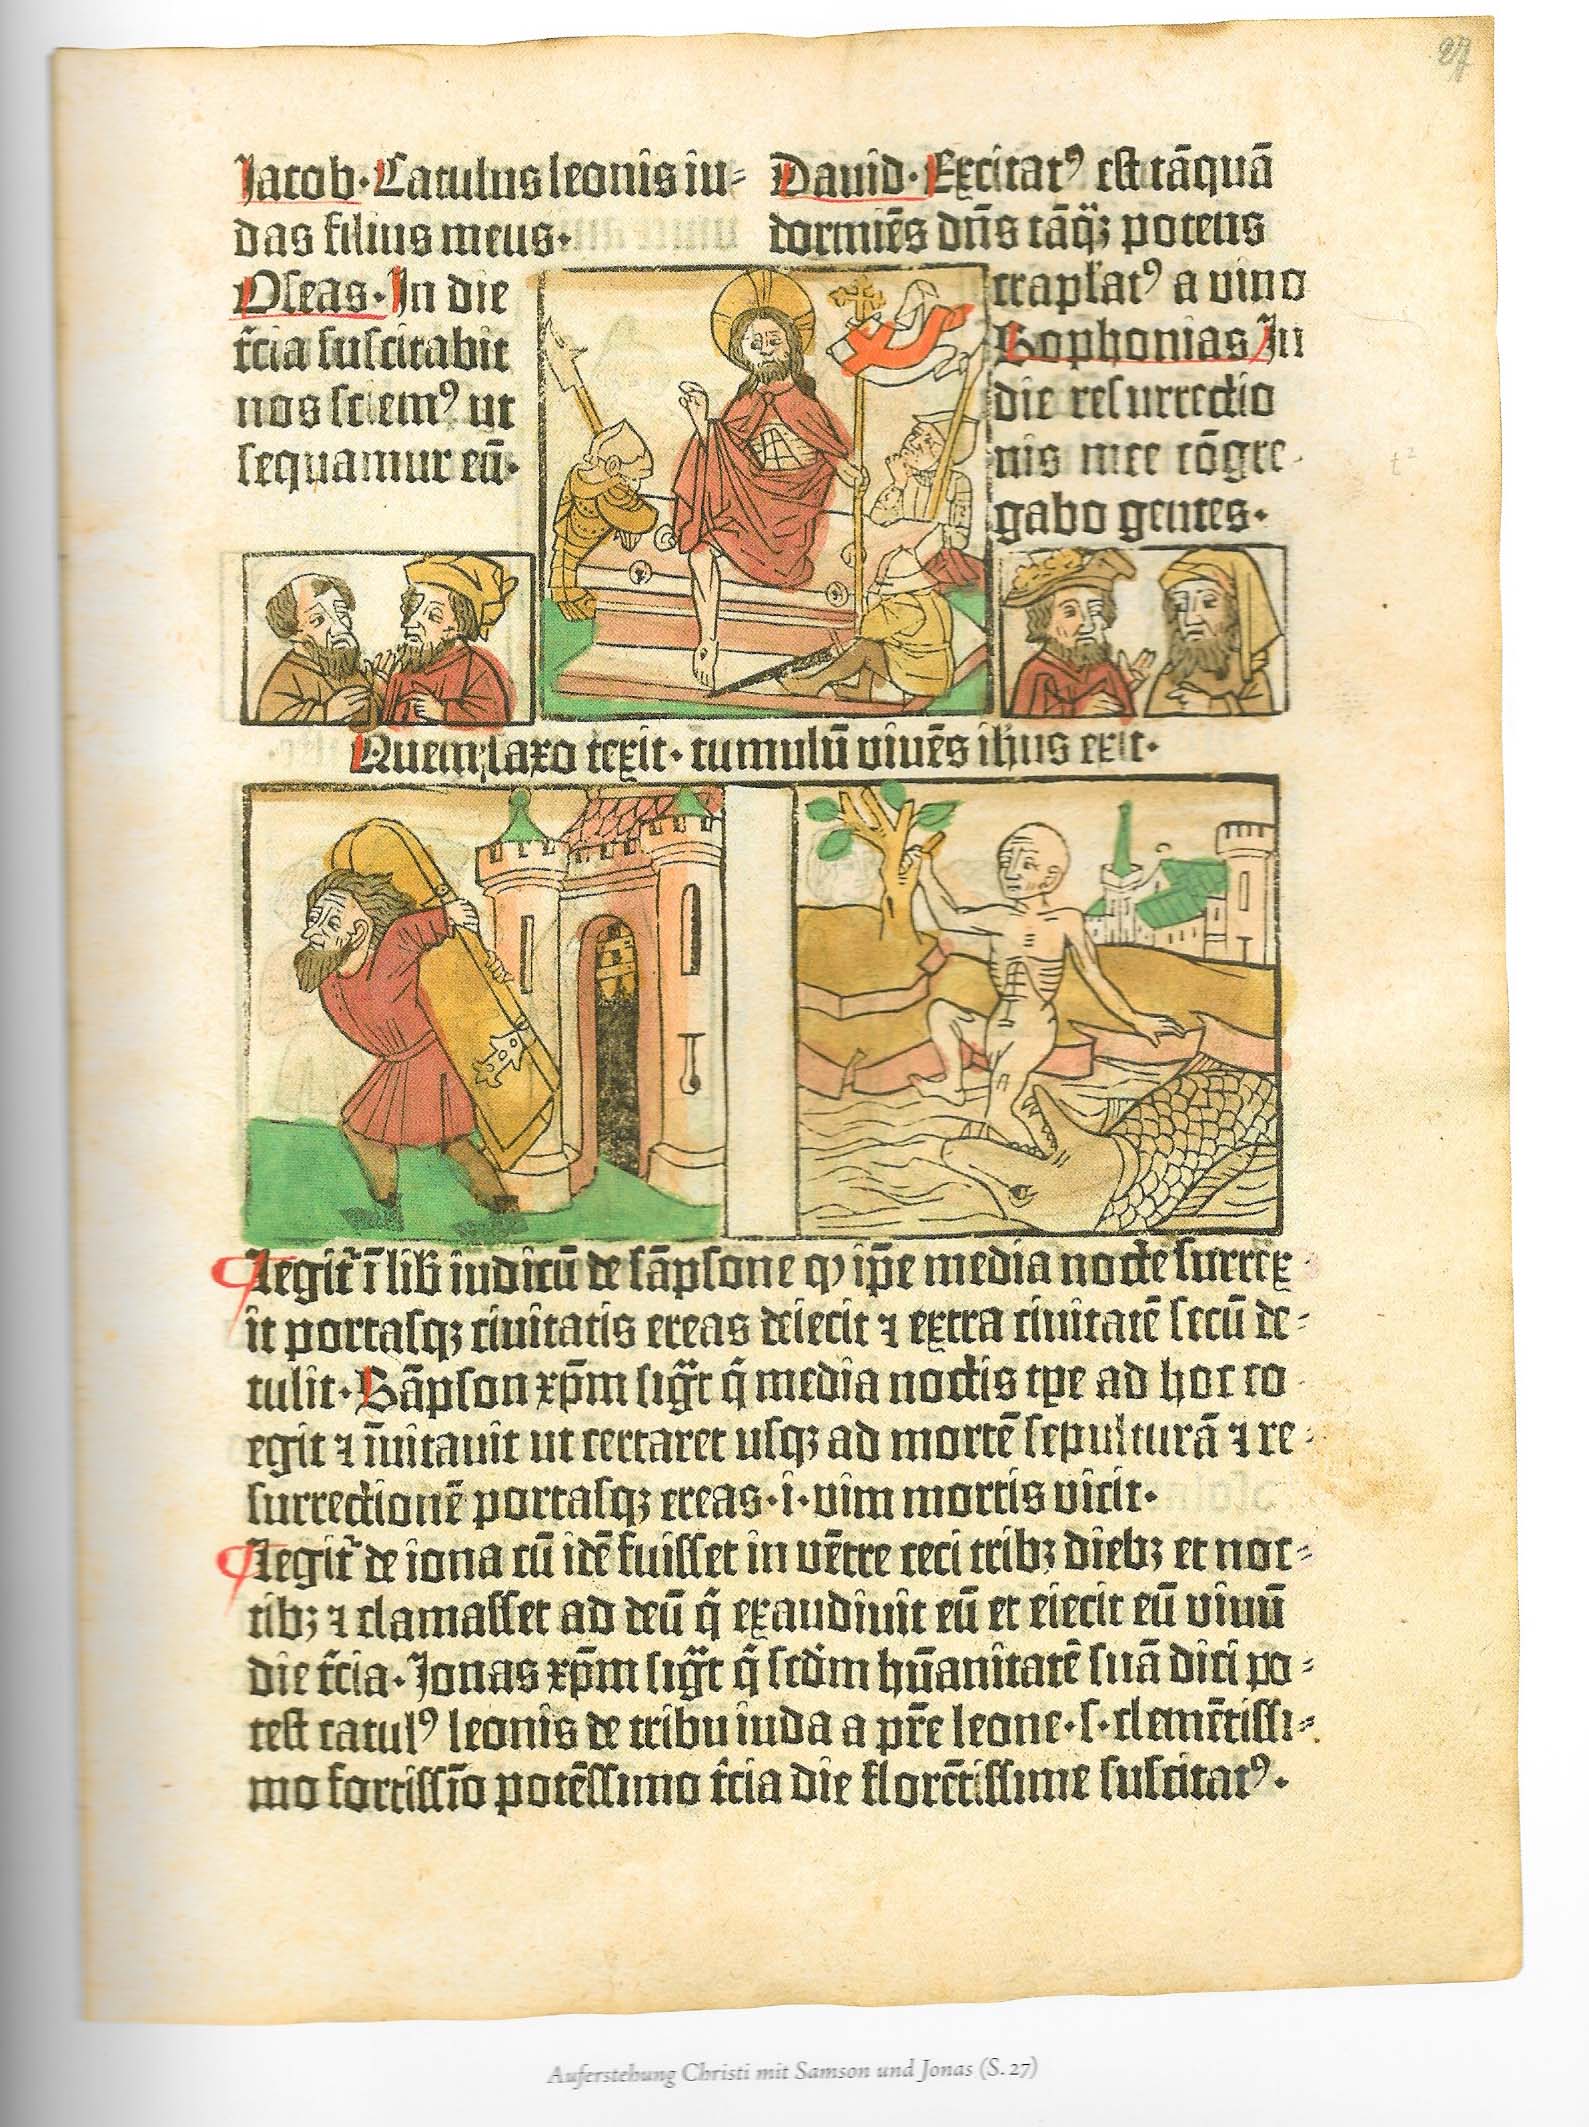 27
Jacob. Catulus leonis iu⸗
das filius meus.
Oseas. In die
t̄cia suscitabit
nos sciemꝰ ut
sequamur eū.
Dauid. Excitatꝰ est tāquā
dormiēs dn̄s tāq̄ꝫ potens
crapl̄atꝰ a vino
Sophonias In
die resurrectio
nis mee cōgre
gabo gentes.
Quem saxo texit. tumulū viuēs ihus exit.
Legit᷑ ī lib̄ iudicū de sāpsone ꝙ ip̄e media nocte surrex
it portasqꝫ ciuitatis ereas deiecit ⁊ extra ciuitatē secū de⸗
tulit. Sāpson xp̄m siḡt q̄ media noctis tp̄e ad hoc co
egit ⁊ īuitauit ut certaret usqꝫ ad mortē sepulturā ⁊ re⸗
surrectionē portasqꝫ ereas. i. vim mortis vicit.
Legit᷑ de iona cū idē fuisset in vētre ceti tribꝫ diebꝫ et noc⸗
tibꝫ ⁊ clamasset ad deū q̄ exaudiuit eū et eiecit eū viuū
die t̄cia. Jonas xp̄m siḡt q̄ scd̄m hūanitatē suā dici po⸗
test catulꝰ leonis de tribu iuda a pr̄e leone. s. clemētissi⸗
mo fortissīo potēssimo t̄cia die florētissime suscitatꝰ.
Auferstehung Christi mit Samson und Jonas (S. 27)